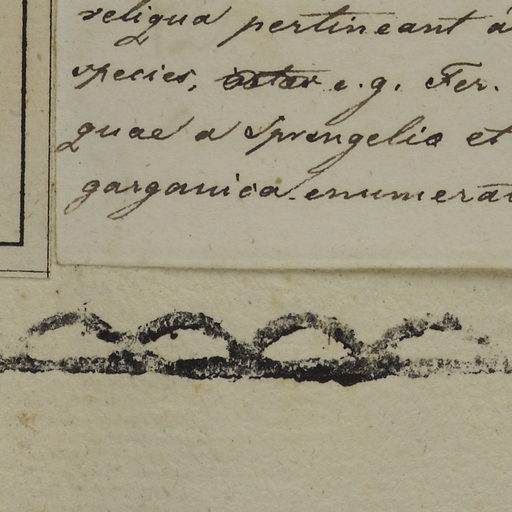 reliqua pertineant á
species, e.g. Fer.
quae a Sprengelio et
garganica enumerat